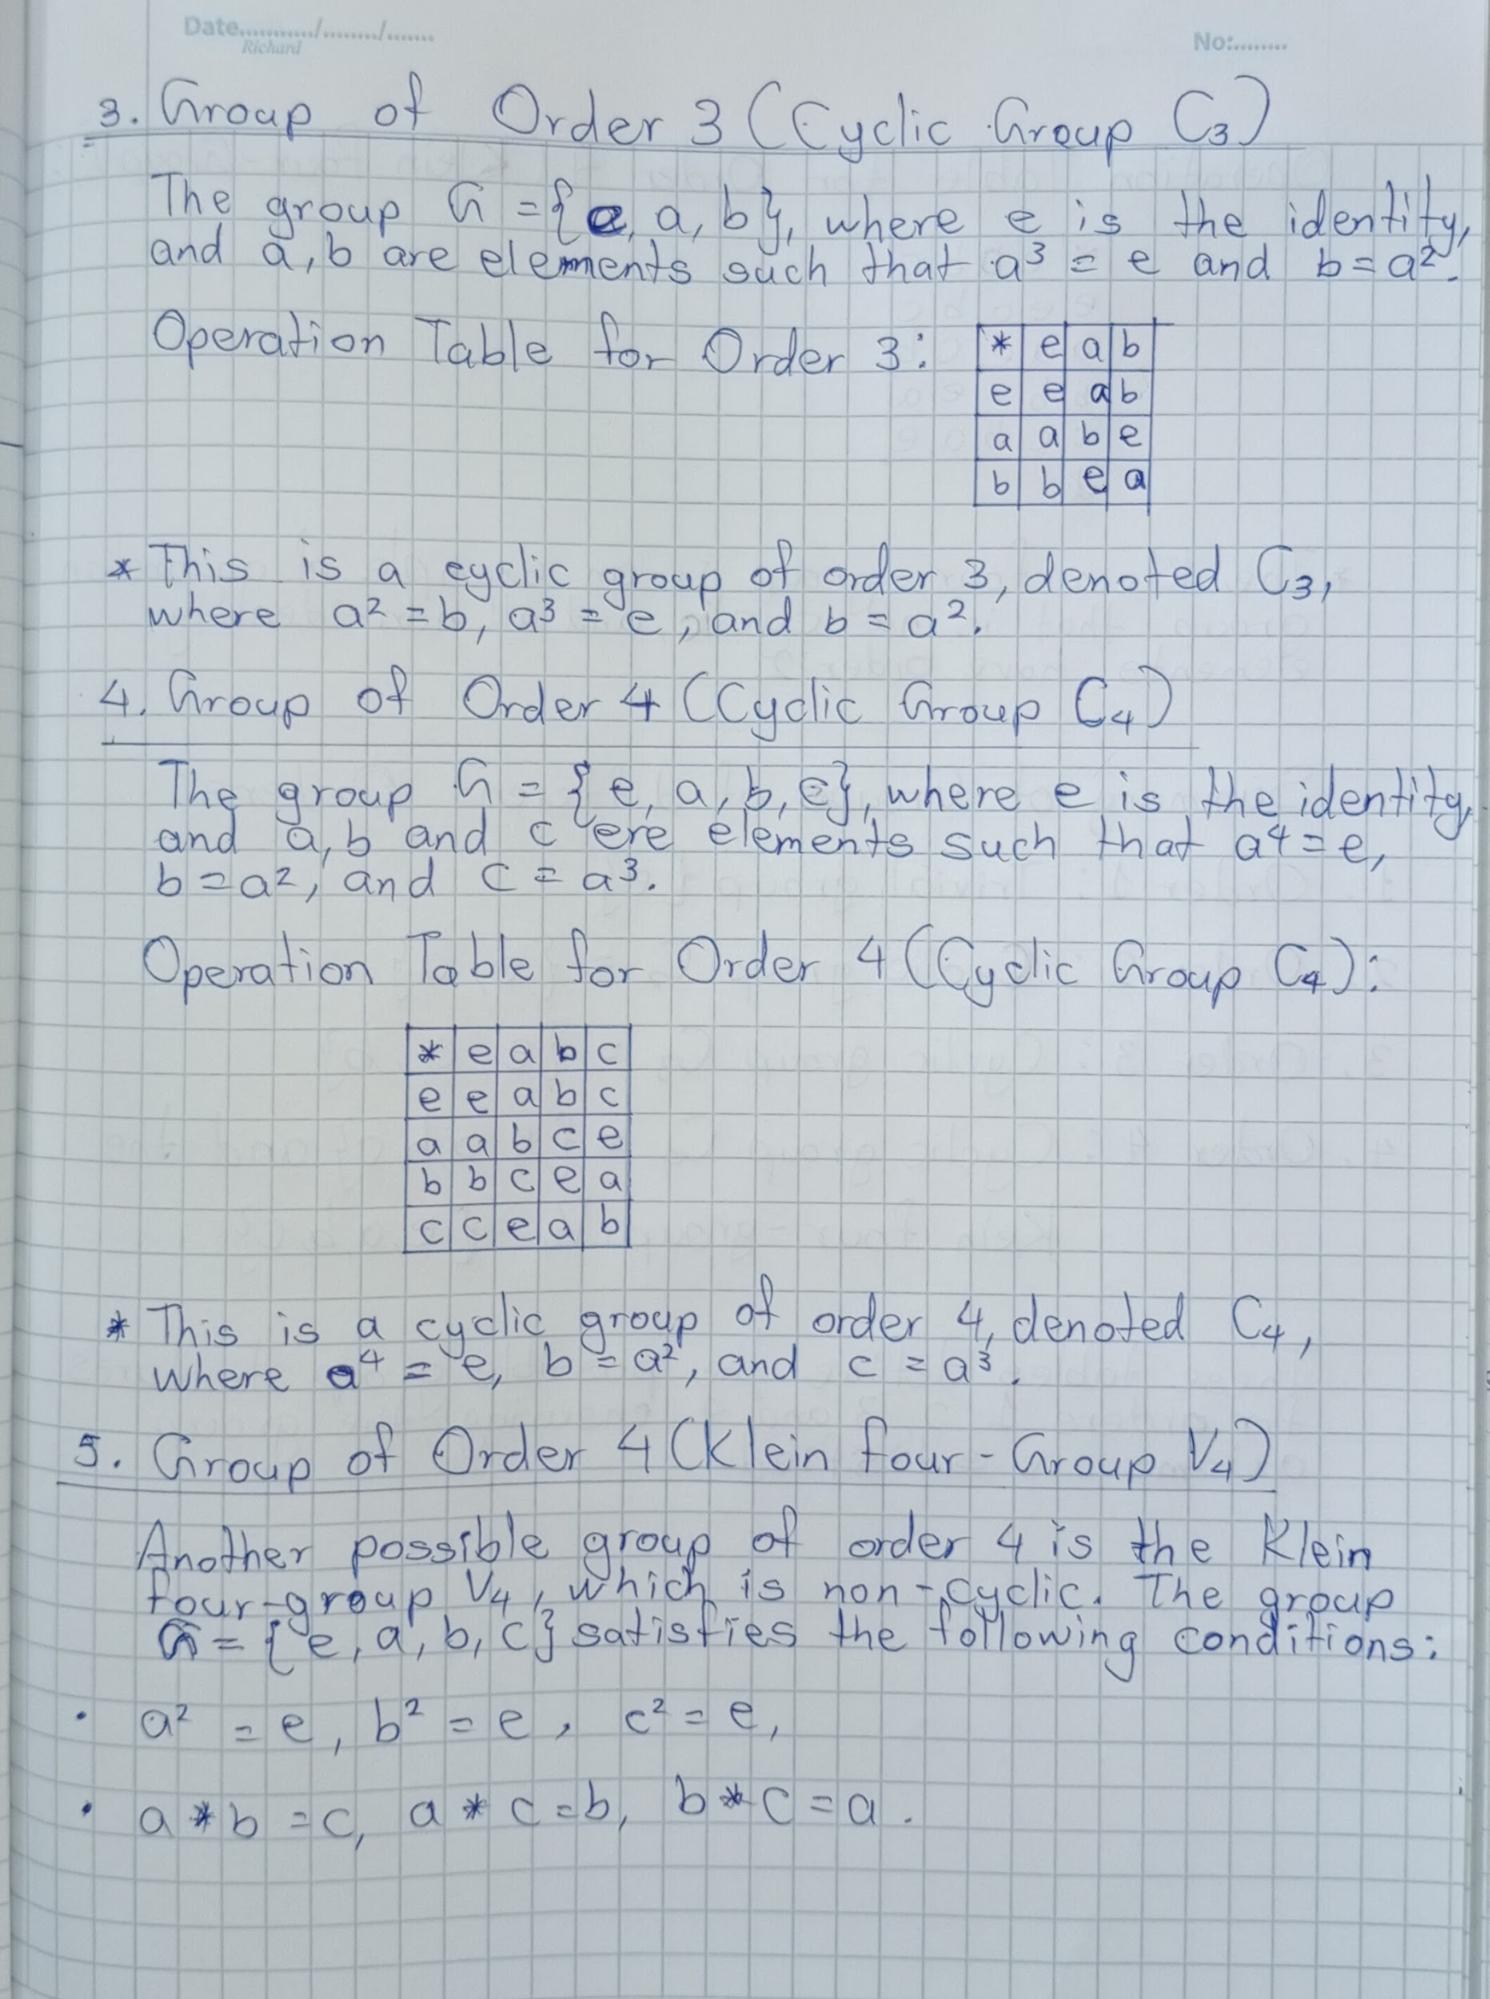 Date.........../......../.......
Richard
No:........
3. Group of Order 3 (Cyclic Group C₃)
The group G = {e, a, b}, where e is the identity,
and a, b are elements such that a³ = e and b = a².
Operation Table for Order 3:
* e a b
e e a b
a a b e
b b e a
* This is a cyclic group of order 3, denoted C₃,
where a² = b, a³ = e, and b = a².
4. Group of Order 4 (Cyclic Group C₄)
The group G = {e, a, b, c}, where e is the identity,
and a, b and c ere elements such that a⁴ = e,
b = a², and c = a³.
Operation Table for Order 4 (Cyclic Group C₄):
* e a b c
e e a b c
a a b c e
b b c e a
c c e a b
* This is a cyclic group of order 4, denoted C₄,
where a⁴ = e, b = a², and c = a³.
5. Group of Order 4 (Klein four-Group V₄)
Another possible group of order 4 is the Klein
four-group V₄, which is non-cyclic. The group
G = {e, a, b, c} satisfies the following conditions:
• a² = e, b² = e, c² = e,
• a * b = c, a * c = b, b * c = a.